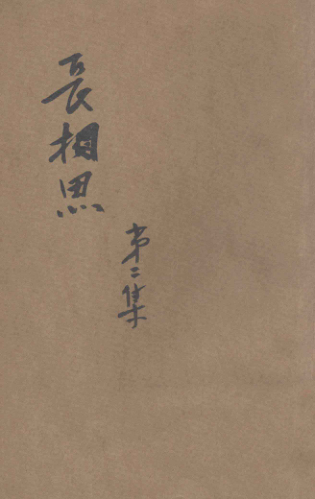 長相思
第二集